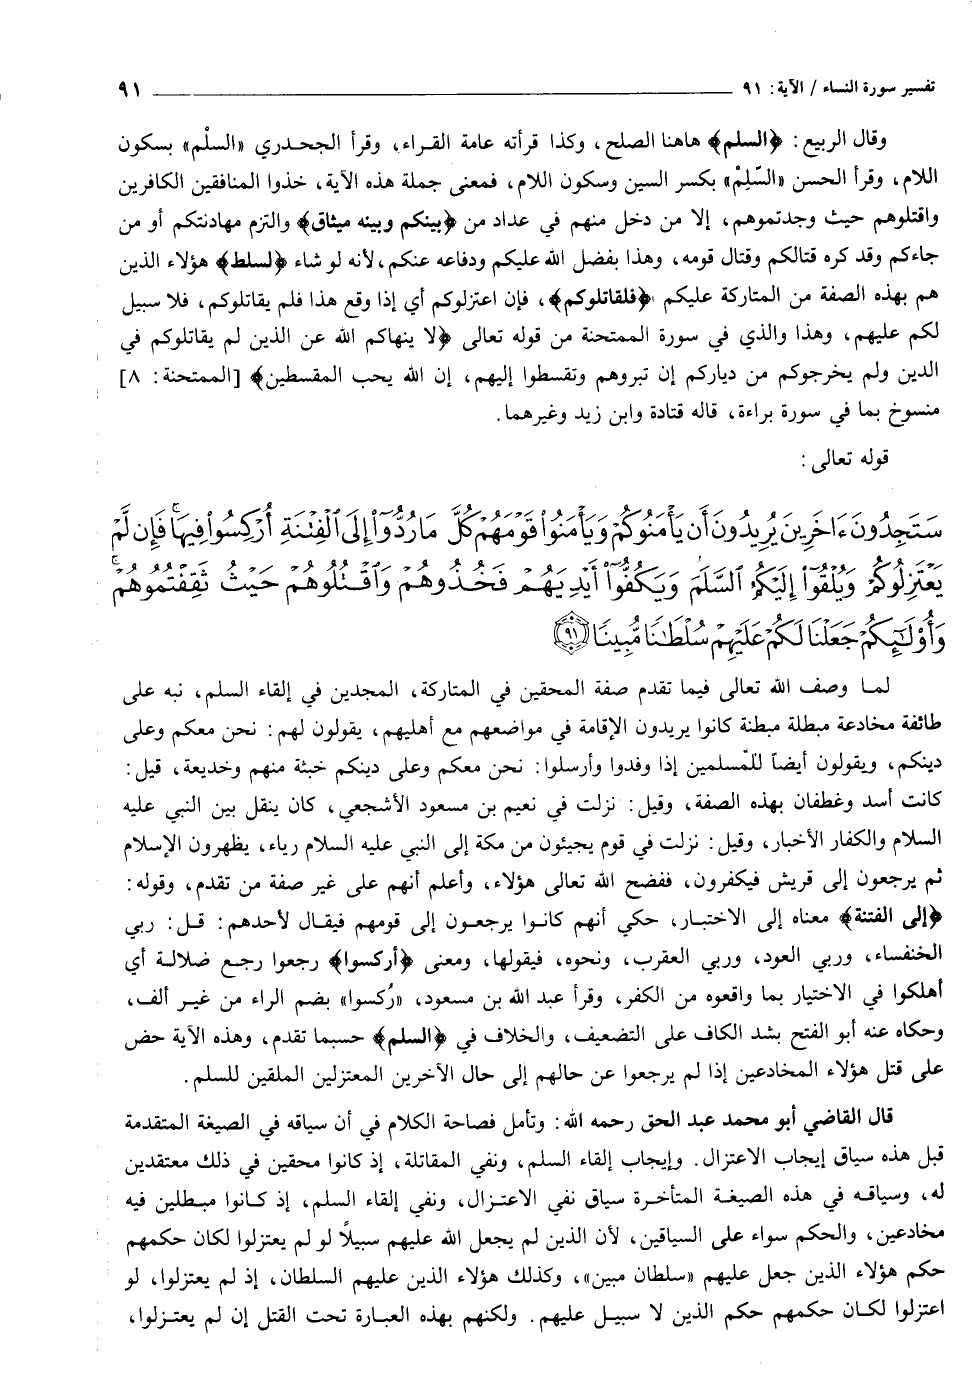 تفسير سورة النساء / الآية: ٩١ ٩١
وقال الربيع: ﴿السلم﴾ هاهنا الصلح، وكذا قرأته عامة القراء، وقرأ الجحدري «السلْم» بسكون
اللام، وقرأ الحسن «السِّلِمْ» بكسر السين وسكون اللام، فمعنى جملة هذه الآية، خذوا المنافقين الكافرين
واقتلوهم حيث وجدتموهم، إلا من دخل منهم في عداد من ﴿بينكم وبينه ميثاق﴾ والتزم مهادنتكم أو من
جاءكم وقد كره قتالكم وقتال قومه، وهذا بفضل الله عليكم ودفاعه عنكم، لأنه لو شاء ﴿لسلط﴾ هؤلاء الذين
هم بهذه الصفة من المتاركة عليكم ﴿فلقاتلوكم﴾، فإن اعتزلوكم أي إذا وقع هذا فلم يقاتلوكم، فلا سبيل
لكم عليهم، وهذا والذي في سورة الممتحنة من قوله تعالى ﴿لا ينهاكم الله عن الذين لم يقاتلوكم في
الدين ولم يخرجوكم من دياركم إن تبروهم وتقسطوا إليهم، إن الله يحب المقسطين﴾ [الممتحنة: ٨]
منسوخ بما في سورة براءة، قاله قتادة وابن زيد وغيرهما.
قوله تعالى:
سَتَجِدُونَ ءَاخَرِينَ يُرِيدُونَ أَن يَأْمَنُوكُمْ وَيَأْمَنُوا۟ قَوْمَهُمْ كُلَّ مَا رُدُّوٓا۟ إِلَى ٱلْفِتْنَةِ أُرْكِسُوا۟ فِيهَا ۚ فَإِن لَّمْ
يَعْتَزِلُوكُمْ وَيُلْقُوٓا۟ إِلَيْكُمُ ٱلسَّلَمَ وَيَكُفُّوٓا۟ أَيْدِيَهُمْ فَخُذُوهُمْ وَٱقْتُلُوهُمْ حَيْثُ ثَقِفْتُمُوهُمْ ۚ
وَأُو۟لَٰٓئِكُمْ جَعَلْنَا لَكُمْ عَلَيْهِمْ سُلْطَٰنًا مُّبِينًا ﴿٩١﴾
لما وصف الله تعالى فيما تقدم صفة المحقين في المتاركة، المجدين في إلقاء السلم، نبه على
طائفة مخادعة مبطلة مبطنة كانوا يريدون الإقامة في مواضعهم مع أهليهم، يقولون لهم: نحن معكم وعلى
دينكم، ويقولون أيضاً للمسلمين إذا وفدوا وأرسلوا: نحن معكم وعلى دينكم خبثة منهم وخديعة، قيل:
كانت أسد وغطفان بهذه الصفة، وقيل: نزلت في نعيم بن مسعود الأشجعي، كان ينقل بين النبي عليه
السلام والكفار الأخبار، وقيل: نزلت في قوم يجيئون من مكة إلى النبي عليه السلام رياء، يظهرون الإسلام
ثم يرجعون إلى قريش فيكفرون، ففضح الله تعالى هؤلاء، وأعلم أنهم على غير صفة من تقدم، وقوله:
﴿إلى الفتنة﴾ معناه إلى الاختبار، حكي أنهم كانوا يرجعون إلى قومهم فيقال لأحدهم: قل: ربي
الخنفساء، وربي العود، وربي العقرب، ونحوه، فيقولها، ومعنى ﴿أركسوا﴾ رجعوا رجع ضلالة أي
أهلكوا في الاختيار بما واقعوه من الكفر، وقرأ عبد الله بن مسعود، «رُكسوا» بضم الراء من غير ألف،
وحكاه عنه أبو الفتح بشد الكاف على التضعيف، والخلاف في ﴿السلم﴾ حسبما تقدم، وهذه الآية حض
على قتل هؤلاء المخادعين إذا لم يرجعوا عن حالهم إلى حال الآخرين المعتزلين الملقين للسلم.
قال القاضي أبو محمد عبد الحق رحمه الله: وتأمل فصاحة الكلام في أن سياقه في الصيغة المتقدمة
قبل هذه سياق إيجاب الاعتزال. وإيجاب إلقاء السلم، ونفي المقاتلة، إذ كانوا محقين في ذلك معتقدين
له، وسياقه في هذه الصيغة المتأخرة سياق نفي الاعتزال، ونفي إلقاء السلم، إذ كانوا مبطلين فيه
مخادعين، والحكم سواء على السياقين، لأن الذين لم يجعل الله عليهم سبيلاً لو لم يعتزلوا لكان حكمهم
حكم هؤلاء الذين جعل عليهم «سلطان مبين»، وكذلك هؤلاء الذين عليهم السلطان، إذ لم يعتزلوا، لو
اعتزلوا لكان حكمهم حكم الذين لا سبيل عليهم. ولكنهم بهذه العبارة تحت القتل إن لم يعتزلوا،